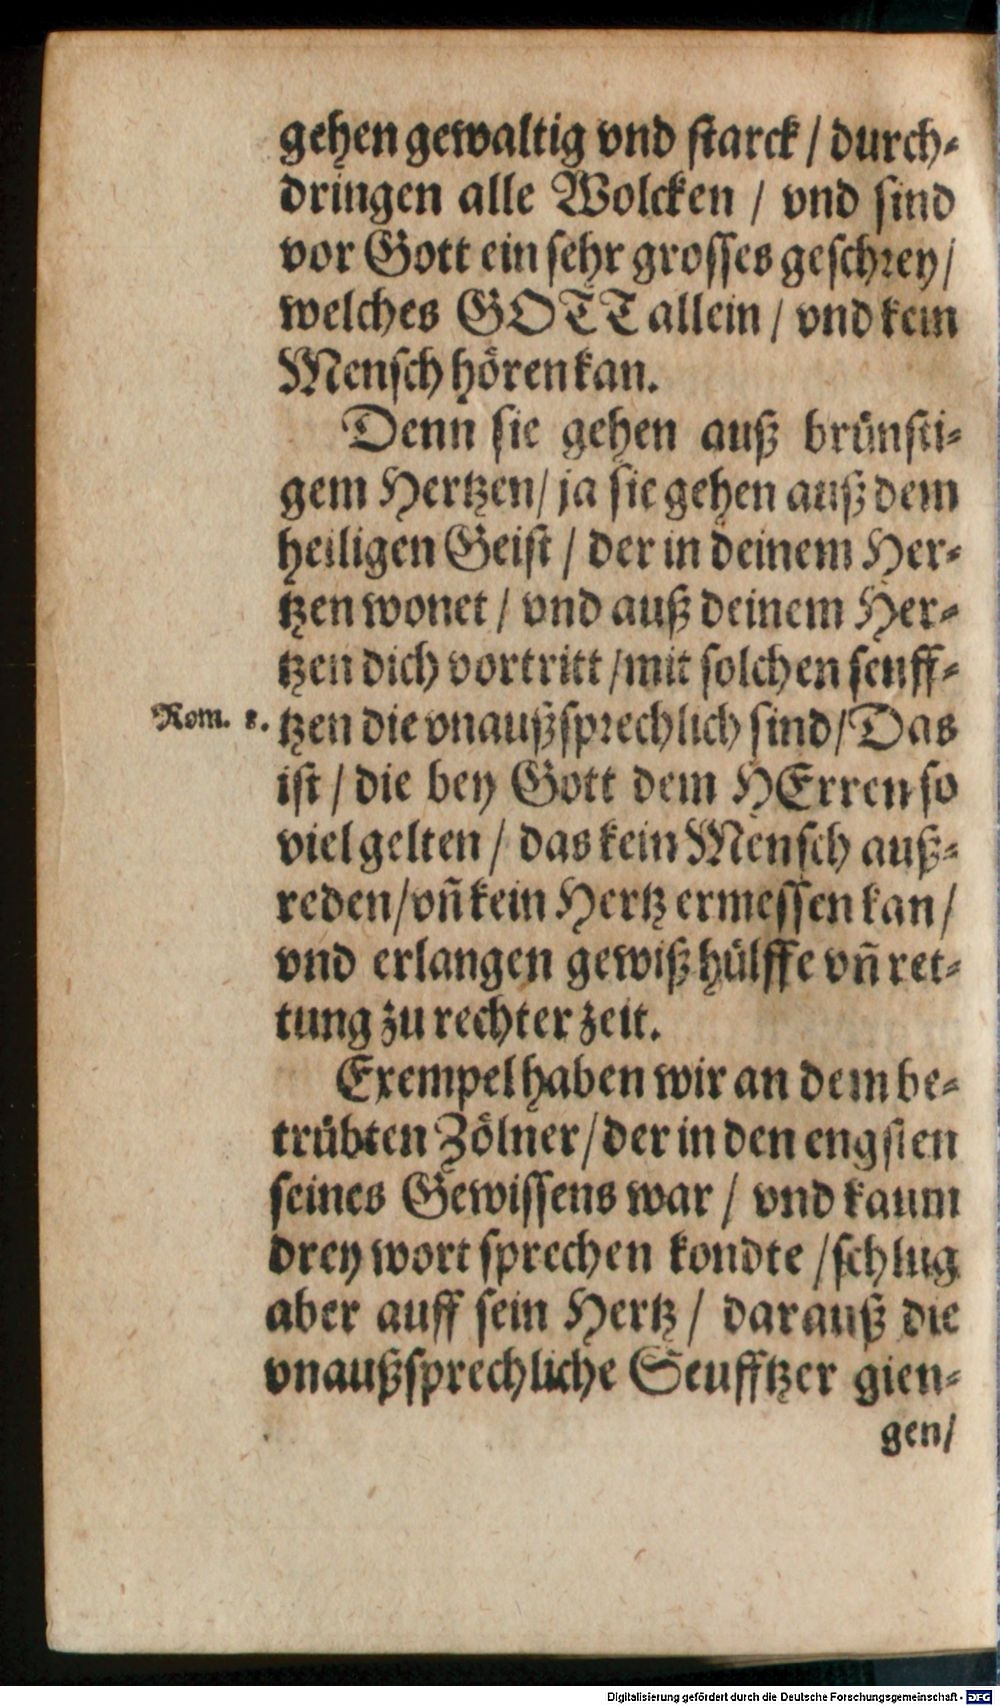 gehen gewaltig vnd starck / durch-
dringen alle Wolcken / vnd sind
vor Gott ein sehr grosses geschrey /
welches GOTT allein / vnd kein
Mensch hören kan.
Denn sie gehen auß brünsti-
gem Hertzen / ja sie gehen auß dem
heiligen Geist / der in deinem Her-
tzen wonet / vnd auß deinem Her-
tzen dich vortritt / mit solchen seuff-
Rom. 8. tzen die vnaußsprechlich sind / Das
ist / die bey Gott dem HErren so
viel gelten / das kein Mensch auß-
reden / vñ kein Hertz ermessen kan /
vnd erlangen gewiß hülffe vñ ret-
tung zu rechter zeit.
Exempel haben wir an dem be-
trübten Zölner / der in den engsten
seines Gewissens war / vnd kaum
drey wort sprechen kondte / schlug
aber auff sein Hertz / darauß die
vnaußsprechliche Seufftzer gien-
gen /
Digitalisierung gefördert durch die Deutsche Forschungsgemeinschaft - DFG